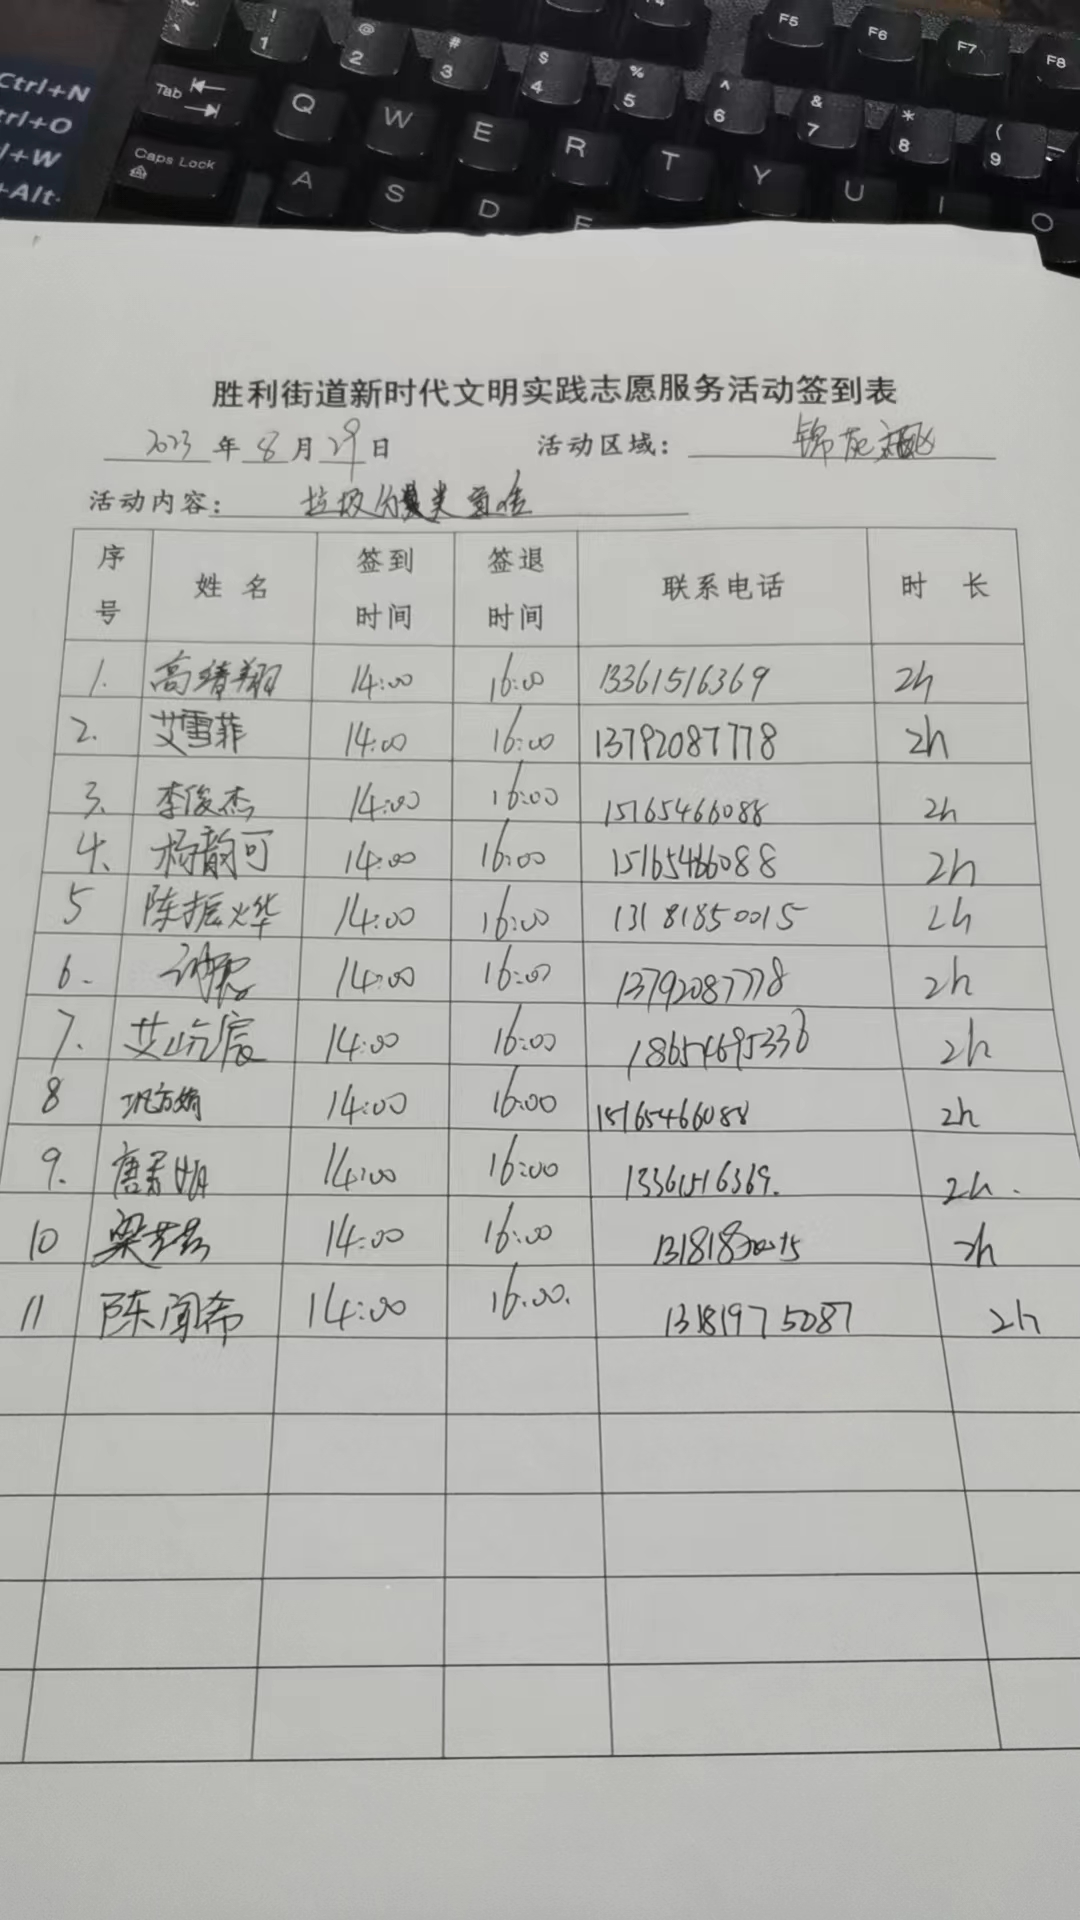 ~ ! 1 @ 2 # 3 $ 4 % 5 ^ 6 & 7 * 8 ( 9
F4 F5 F6 F7 F8
Tab Q W E R T Y U I O
Caps Lock A S D F
Ctrl+N
trl+O
l+W
+Alt-
胜利街道新时代文明实践志愿服务活动签到表
2023年8月29日 活动区域: 锦苑
活动内容: 垃圾分类宣传
序号 姓名 签到时间 签退时间 联系电话 时长
1. 高靖翔 14:00 16:00 13361516369 2h
2. 艾雪菲 14:00 16:00 13792087778 2h
3. 李俊杰 14:00 16:00 15165466088 2h
4. 杨韵可 14:00 16:00 15165466088 2h
5 陈振烨 14:00 16:00 13181850015 2h
6. 14:00 16:00 13792087778 2h
7. 艾屹宸 14:00 16:00 18654695336 2h
8 巩方婧 14:00 16:00 15165466088 2h
9. 唐 14:00 16:00 13361516369. 2h.
10 梁 14:00 16:00 2h
11 陈闻希 14:00 16:00. 13181975087 2h